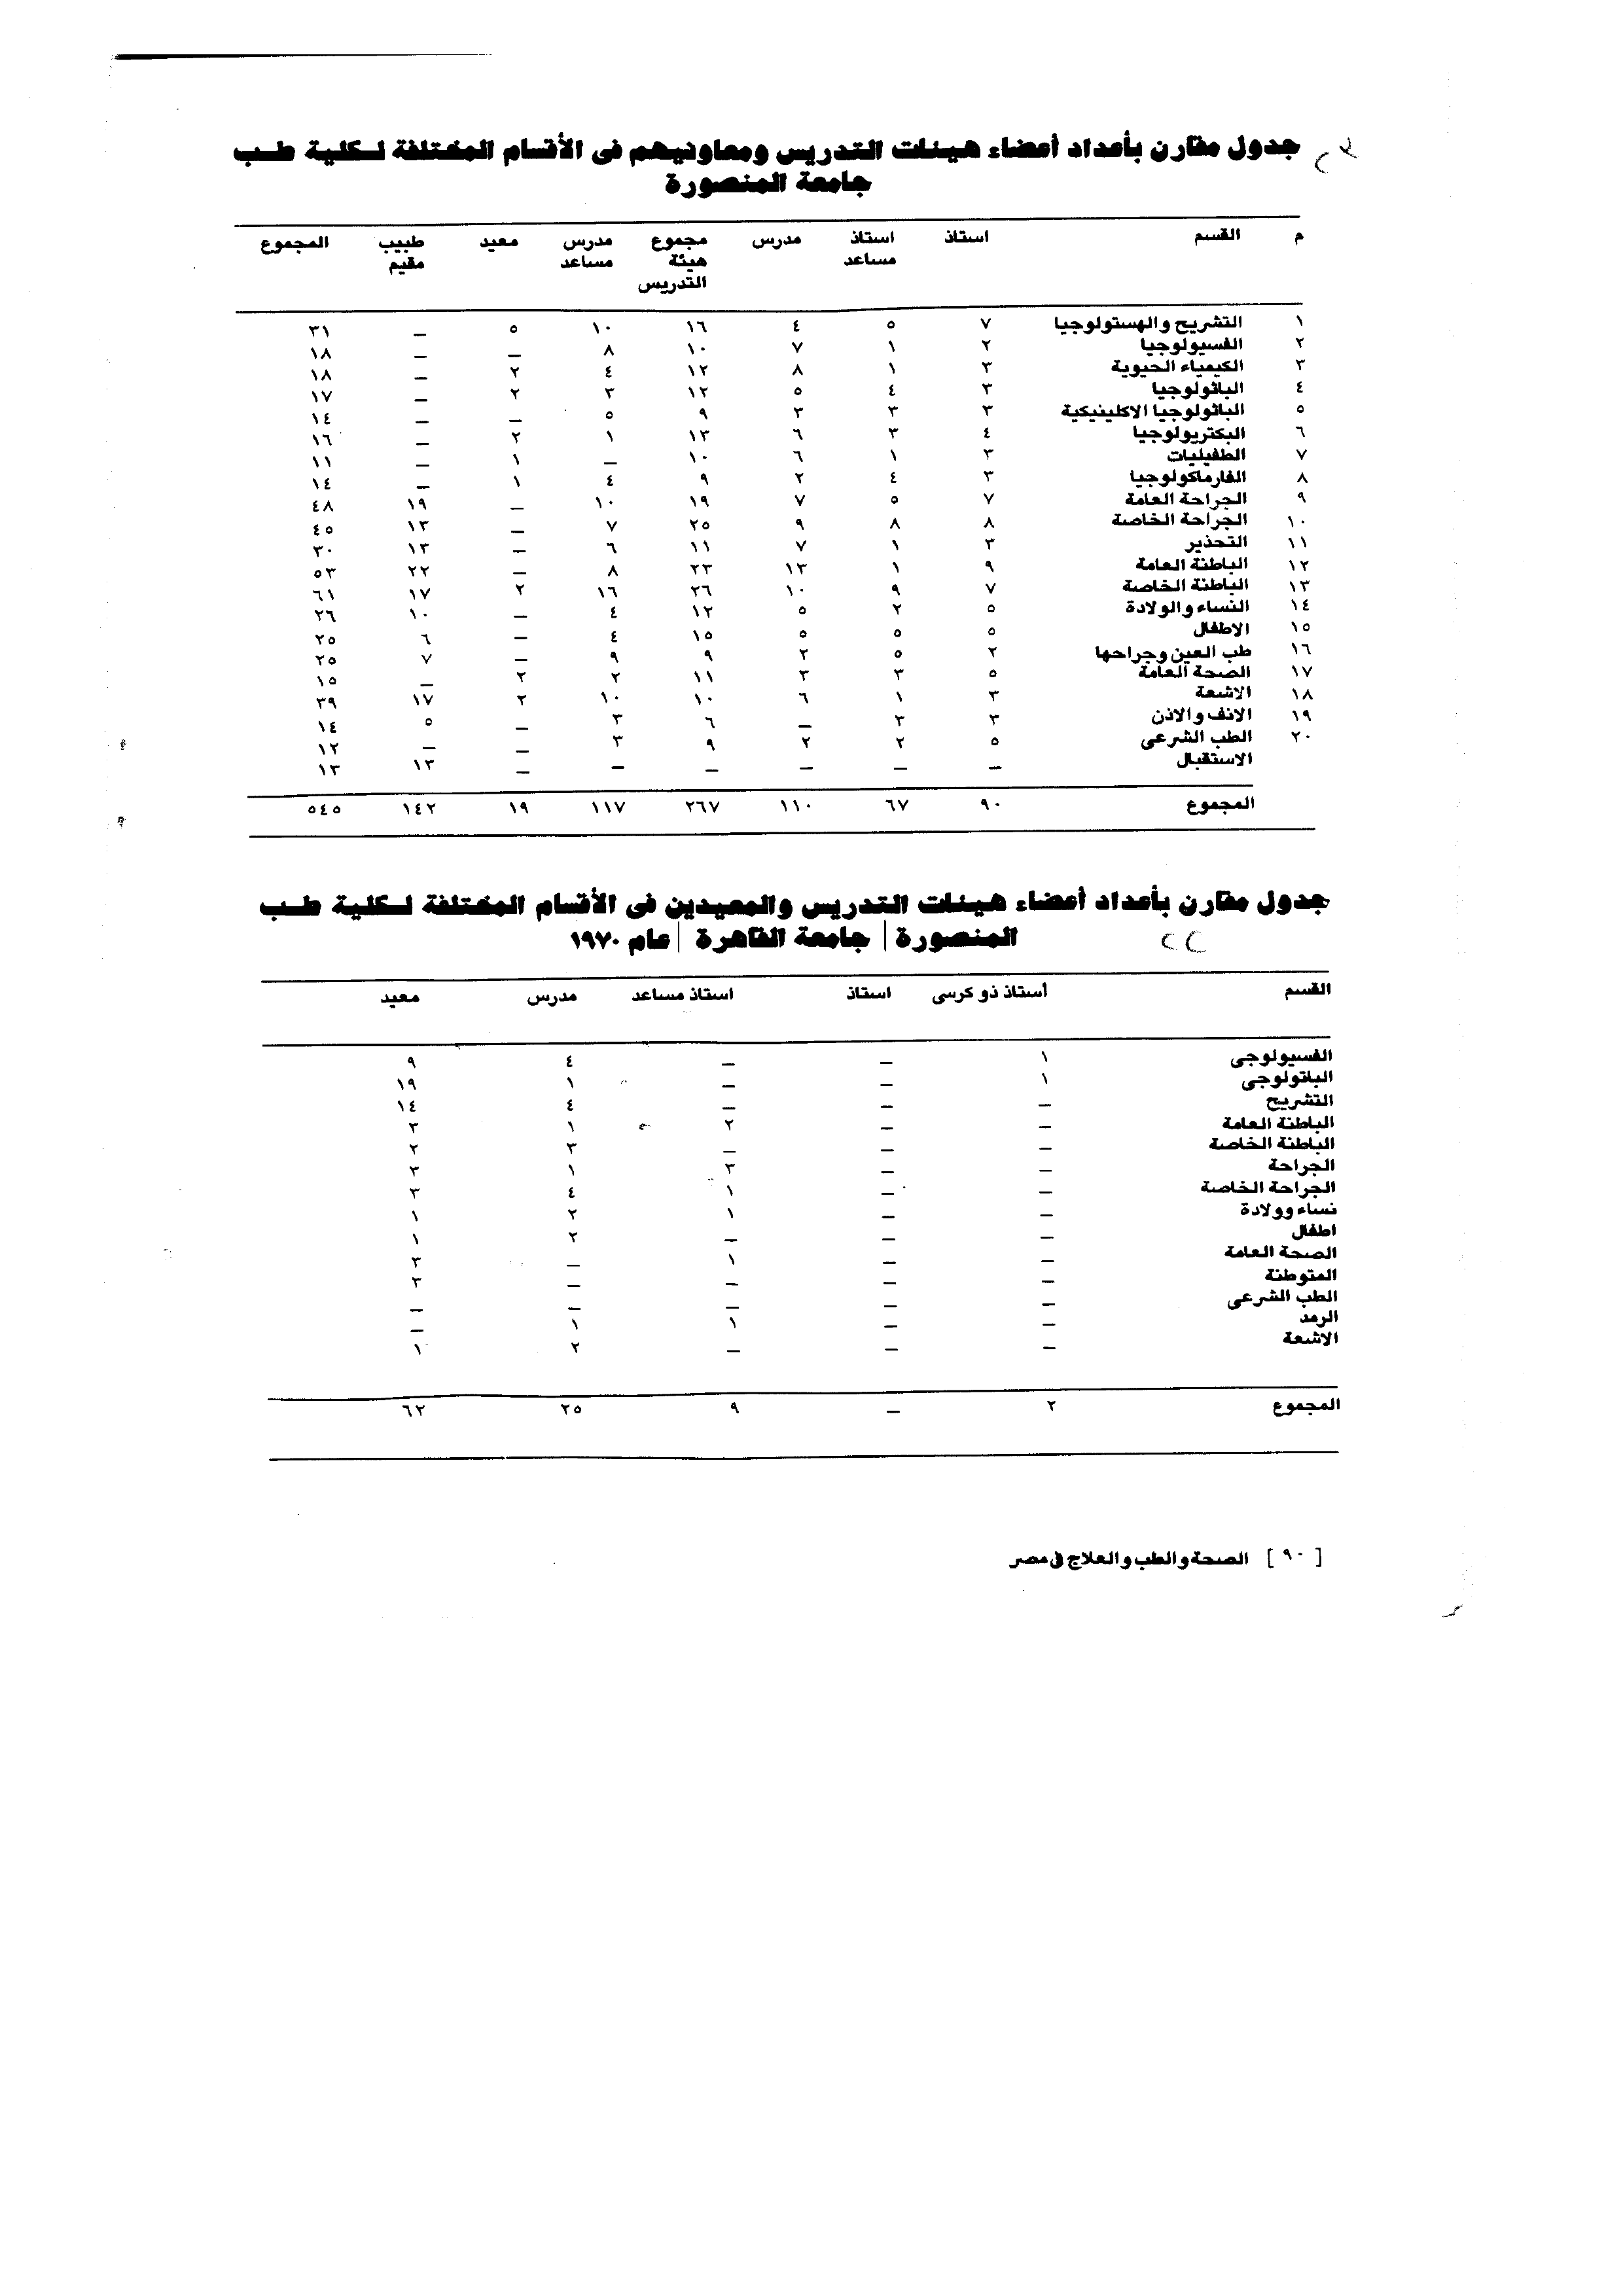 جدول مقارن بأعداد أعضاء هيئات التدريس ومعاونيهم فى الأقسام المختلفة لـكلية طـب
جامعة المنصورة
م القسم استاذ استاذ مساعد مدرس مجموع هيئة التدريس مدرس مساعد معيد طبيب مقيم المجموع
١ التشريح والهستولوجيا ٧ ٥ ٤ ١٦ ١٠ ٥ — ٣١
٢ الفسيولوجيا ٢ ١ ٧ ١٠ ٨ — — ١٨
٣ الكيمياء الحيوية ٣ ١ ٨ ١٢ ٤ ٢ — ١٨
٤ الباثولوجيا ٣ ٤ ٥ ١٢ ٣ ٢ — ١٧
٥ الباثولوجيا الاكلينيكية ٣ ٣ ٣ ٩ ٥ — — ١٤
٦ البكتريولوجيا ٤ ٣ ٦ ١٣ ١ ٢ — ١٦
٧ الطفيليات ٣ ١ ٦ ١٠ — ١ — ١١
٨ الفارماكولوجيا ٣ ٤ ٢ ٩ ٤ ١ — ١٤
٩ الجراحة العامة ٧ ٥ ٧ ١٩ ١٠ — ١٩ ٤٨
١٠ الجراحة الخاصة ٨ ٨ ٩ ٢٥ ٧ — ١٣ ٤٥
١١ التحذير ٣ ١ ٧ ١١ ٦ — ١٣ ٣٠
١٢ الباطنة العامة ٩ ١ ١٣ ٢٣ ٨ — ٢٢ ٥٣
١٣ الباطنة الخاصة ٧ ٩ ١٠ ٢٦ ١٦ ٢ ١٧ ٦١
١٤ النساء والولادة ٥ ٢ ٥ ١٢ ٤ — ١٠ ٢٦
١٥ الاطفال ٥ ٥ ٥ ١٥ ٤ — ٦ ٢٥
١٦ طب العين وجراحها ٢ ٥ ٢ ٩ ٩ — ٧ ٢٥
١٧ الصحة العامة ٥ ٣ ٣ ١١ ٢ ٢ — ١٥
١٨ الاشعة ٣ ١ ٦ ١٠ ١٠ ٢ ١٧ ٣٩
١٩ الانف والاذن ٣ ٣ — ٦ ٣ — ٥ ١٤
٢٠ الطب الشرعى ٥ ٢ ٢ ٩ ٣ — — ١٢
الاستقبال — — — — — — ١٣ ١٣
المجموع ٩٠ ٦٧ ١١٠ ٢٦٧ ١١٧ ١٩ ١٤٢ ٥٤٥
جدول مقارن بأعداد أعضاء هيئات التدريس والمعيدين فى الأقسام المختلفة لـكلية طـب
المنصورة | جامعة القاهرة | عام ١٩٧٠
القسم أستاذ ذو كرسى استاذ استاذ مساعد مدرس معيد
الفسيولوجى ١ — — ٤ ٩
الباتولوجى ١ — — ١ ١٩
التشريح — — — ٤ ١٤
الباطنة العامة — — ٢ ١ ٣
الباطنة الخاصة — — — ٣ ٢
الجراحة — — ٣ ١ ٣
الجراحة الخاصة — — ١ ٤ ٣
نساء وولادة — — ١ ٢ ١
اطفال — — — ٢ ١
الصحة العامة — — ١ — ٣
المتوطنة — — — — ٣
الطب الشرعى — — — — —
الرمد — — ١ ١ —
الاشعة — — — ٢ ١
المجموع ٢ — ٩ ٢٥ ٦٢
[ ٩٠ ] الصحة والطب والعلاج فى مصر